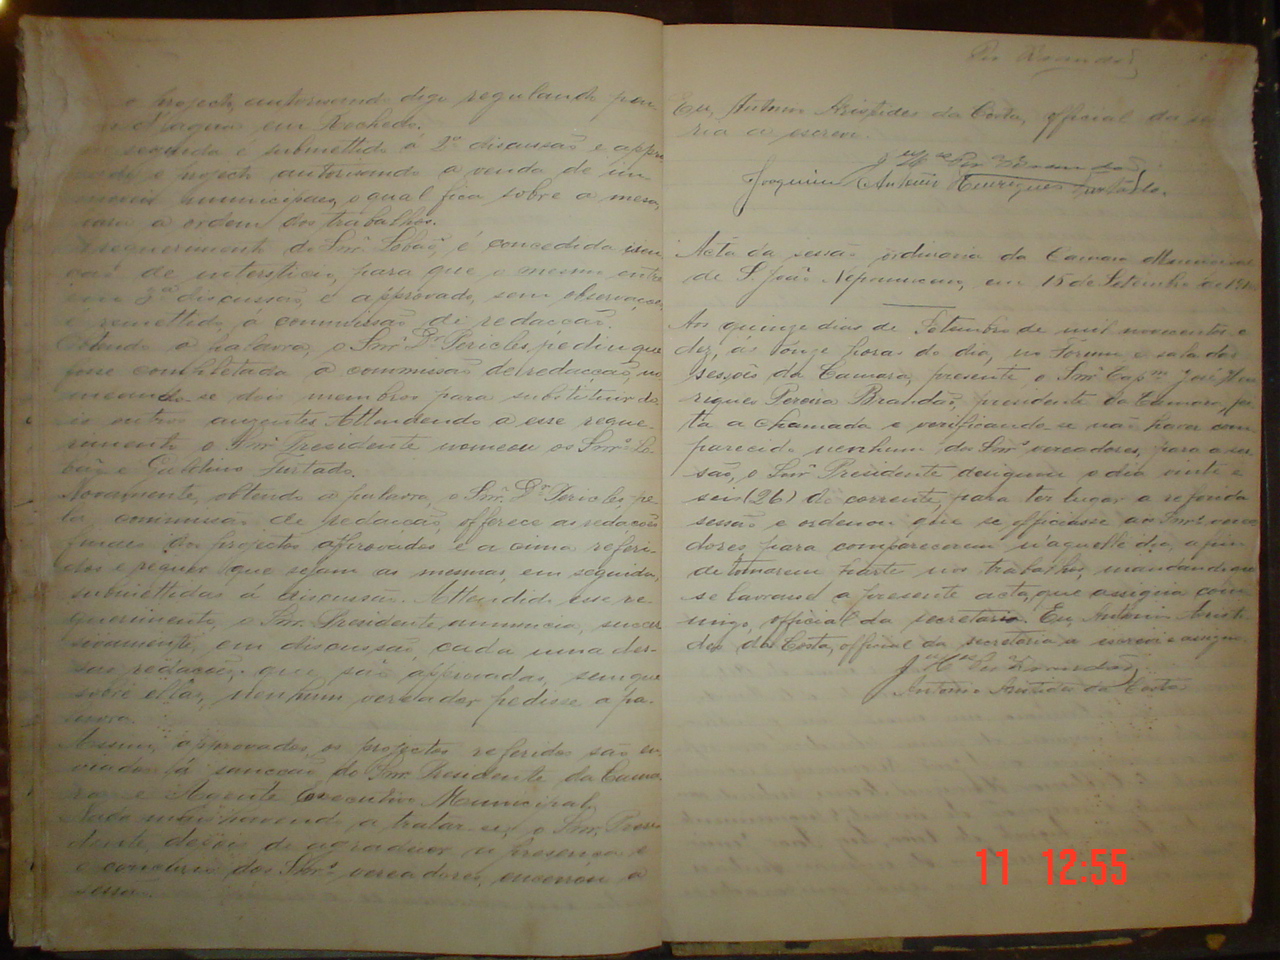 o projecto, autorisando digo regulando pen-
nas d'agua em Rochedo.
segunda é submettido á 2ª discussão e appro-
vado o project autorisando a venda de im-
moveis municipaes, o qual fica sobre a mesa,
para a ordem dos trabalhos.
A requerimento do Snr. Lobão, é concedida isen-
ção de intersticio, para que o mesmo entre
em 3ª discussão, e approvado, sem observação,
é remettido á commissão de redacção.
Obtendo a palavra, o Snr. Dr. Pericles pediu que
fosse completada a commissão de redacção, no-
meando-se dois membros para substituir
outros auzentes. Attendendo a esse reque-
rimento o Snr. Presidente nomeou os Snrs. Lo-
bão e Furtado.
Novamente, obtendo a palavra, o Snr. Dr. Pericles, pe-
la commissão de redacção, offerece as redacções
finaes dos projectos approvados e a cima referi-
dos e requer que sejam as mesmas, em seguida,
submettidas á discussão. Attendido esse re-
querimento, o Snr. Presidente annuncia, succes-
sivamente, em discussão, cada uma des-
sas redacções, que são approvadas, sem que
sobre ellas, nenhum vereador pedisse a pa-
lavra.
Assim, approvados, os projectos referidos são en-
viados á sancção do Snr. Presidente da Cama-
ra e Agente Executivo Municipal.
Nada mais havendo a tratar-se, o Snr. Presi-
dente, depois de agradecer a presença e
o concurso dos Snrs. vereadores, encerrou a
sessão.
Eu, Antonio Aristides da Costa, official da
ria a escrevi.
Joaquim Antonio Henriques Furtado.
Acta da sessão ordinaria da Camara Municipal
de S. João Nepomuceno, em 15 de Setembro de 1910
Aos quinze dias de Setembro de mil novecentos e
dez, ás onze horas do dia, no Forum e sala das
sessões da Camara, presente o Snr. Capm. José Hen-
riques Pereira Brandão, presidente da Camara, fei-
ta a chamada e verificando se não haver com-
parecido nenhum dos Snrs. vereadores, para a ses-
são, o Snr. Presidente designou o dia vinte e
seis (26) do corrente, para ter lugar a referida
sessão e ordenou que se officiasse aos Snrs. verea-
dores para comparecerem n'aquelle dia, afim
de tomarem parte nos trabalhos, mandando que
se lavrasse a presente acta, que assigna com-
migo, official da secretaria. Eu, Antonio Aristi-
des da Costa, official da secretaria a escrevi e assigno.
Antonio Aristides da Costa
11 12:55